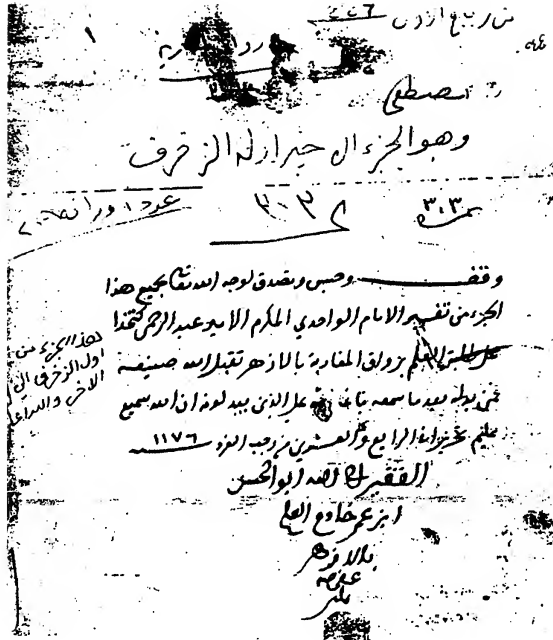 من ربيع اردن ٤٤٦
١
مصطفى
وهو الجزء ال خير اوله الزخرف
عدد اوراقه
٣٠٣٢
نمرة ٣٠٣
وقف وحبس وتصدق لوجه الله تعا بجميع هذا
الجزء من تفسير الامام الواحدي المكرم الامير عبد الرحمن كتخدا
على طلبة العلم برواق المغاربة بالازهر تقبل الله صنيعه
فمن بدله بعد ما سمعه فانما اثمه على الذين يبدلونه ان الله سميع
عليم تحريرا في الرابع والعشرين من رجب الفرد ١١٧٦
الفقير الى الله ابو الحسن
ابن عمر خادم العلم
بالازهر
عفى عنه
هذا الجزء من
اول الزخرف الى
الاخر